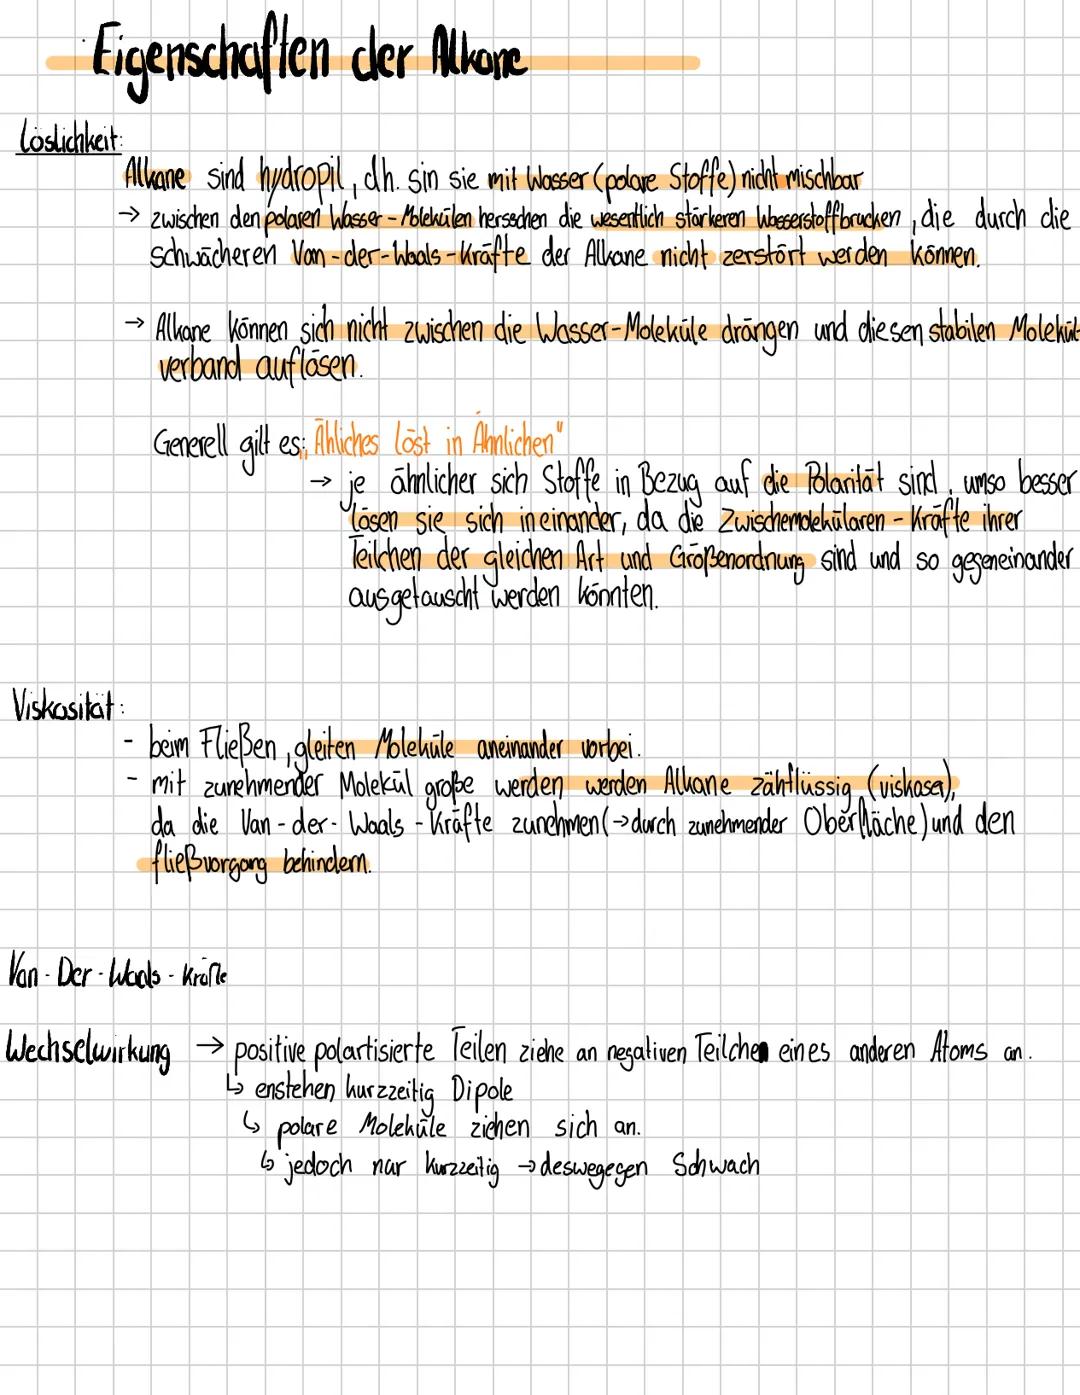 Eigenschaften der Alkane
Löslichkeit:
Alkane sind hydropil, dh. sin sie mit Wasser (polare Stoffe) nicht mischbar
→ zwischen den polaren Wasser-Molekülen herrschen die wesentlich stärkeren Wasserstoffbrücken, die durch die
schwächeren Van-der-Waals-Kräfte der Alkane nicht zerstört werden können.
→ Alkane können sich nicht zwischen die Wasser-Moleküle drängen und diesen stabilen Molekül-
verband auflösen.
Generell gilt es: „Ähliches löst in Ähnlichen"
→ je ähnlicher sich Stoffe in Bezug auf die Polarität sind, umso besser
lösen sie sich ineinander, da die Zwischemolekülaren-Kräfte ihrer
Teilchen der gleichen Art und Größenordnung sind und so gegeneinander
ausgetauscht werden könnten.
Viskosität:
- beim Fließen, gleiten Moleküle aneinander vorbei.
- mit zunehmender Molekül große werden werden Alkane zähflüssig (viskoser),
da die Van-der-Waals-Kräfte zunehmen (→ durch zunehmender Oberfläche) und den
fließvorgang behindern.
Van-Der-Waals-Kräfte
Wechselwirkung → positive polartisierte Teilen ziehe an negativen Teilchen eines anderen Atoms an.
↳ enstehen kurzzeitig Dipole
↳ polare Moleküle ziehen sich an.
↳ jedoch nur kurzzeitig → deswegegen Schwach